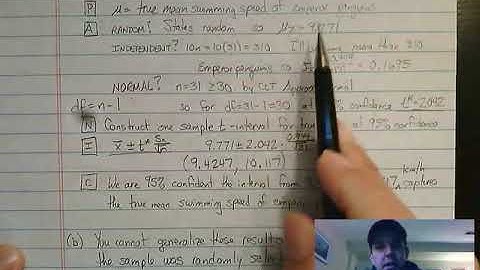 P μ = true mean swimming speed of emperor penguins
A RANDOM? States random so μx̄ = 9.771
INDEPENDENT? 10n = 10(31) = 310 I'll more than 310
Emperor penguins so = 0.1695
NORMAL? n=31 ≥ 30 by CLT Approx
df = n - 1 so for df = 31-1 = 30 at confidence t* = 2.042
N Construct one sample t-interval for at 95% confidence
I x̄ ± t* Sn/√n 9.771 ± 2.042 ·
(9.4247, 10.117)
C We are 95% confident the interval from captures
the true mean swimming speed of
(b) You cannot generalize these
the sample was randomly